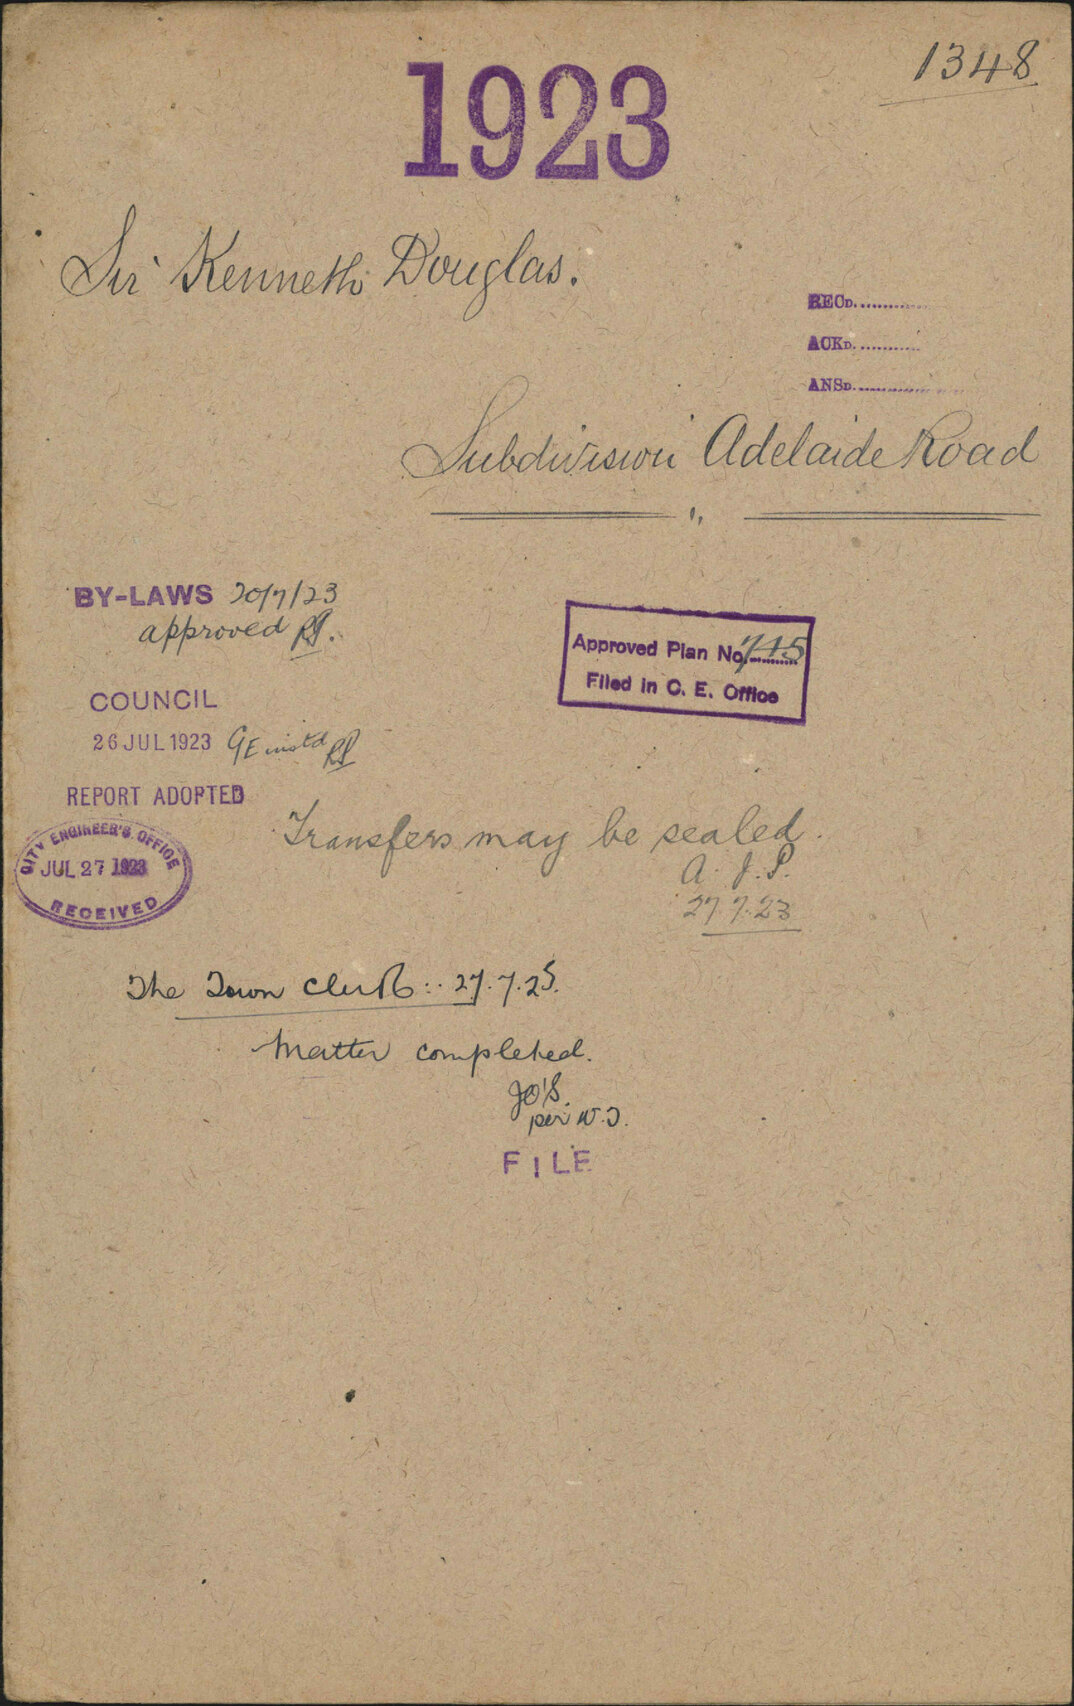 1348
1923
Sir Kenneth Douglas.
RECD.............
ACKD............
ANSD.....................
Subdivision Adelaide Road
BY-LAWS 20/7/23
approved
Approved Plan No. 715
Filed in C. E. Office
COUNCIL
26 JUL 1923 CE instd
REPORT ADOPTED
CITY ENGINEER'S OFFICE
JUL 27 1923
RECEIVED
Transfers may be sealed.
A. J. P.
27.7.23
The Town Clerk:. 27.7.23.
Matter completed.
JO'S.
per W.J.
FILE